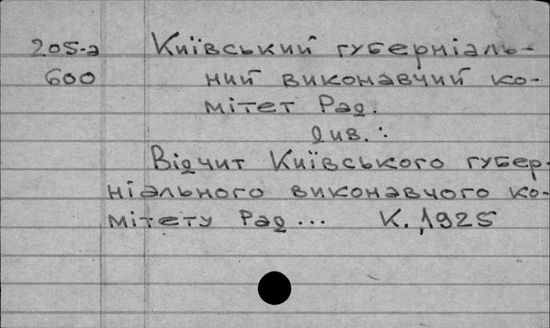 205-а Київський губерніаль-
600 ний виконавчий ко-
мітет Рад.
Див.:
Відчит Київського губер-
ніального виконавчого ко-
мітету Рад... К. 1925